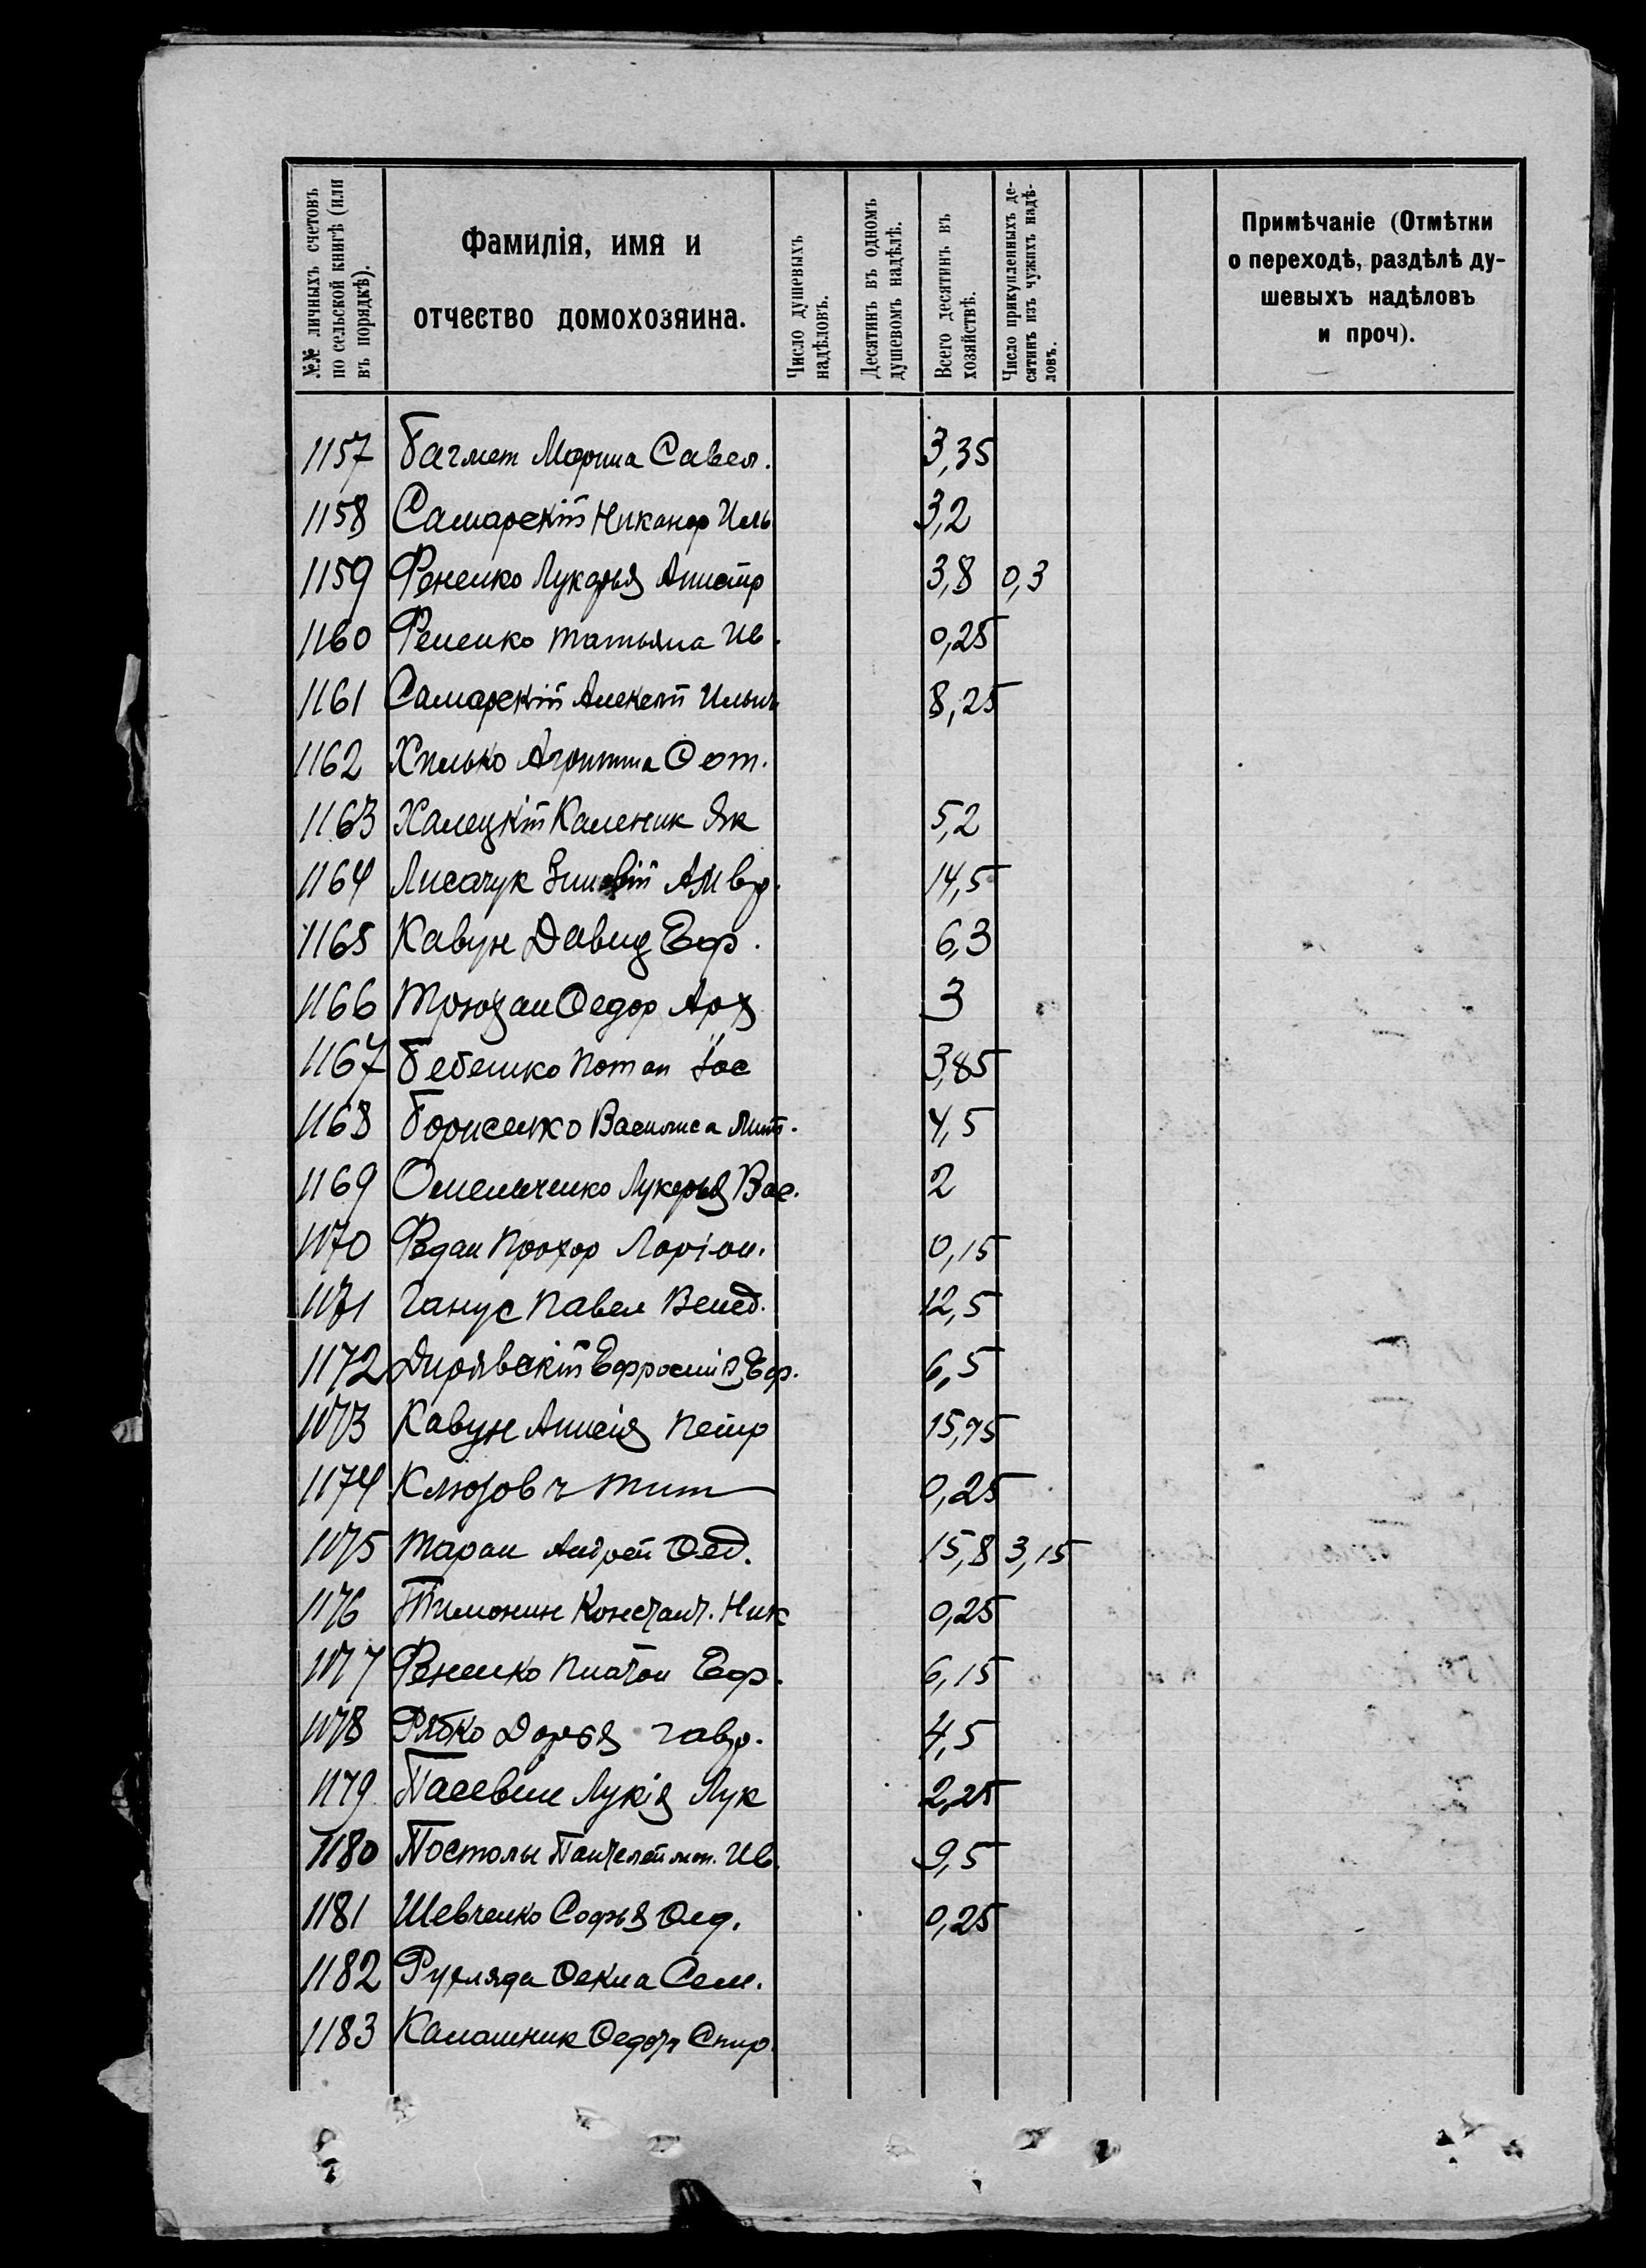 №№ личныхъ счетовъ по сельской книгѣ (или въ порядкѣ).
Фамилія, имя и отчество домохозяина.
Число душевыхъ надѣловъ.
Десятинъ въ одномъ душевомъ надѣлѣ.
Всего десятинъ въ хозяйствѣ.
Число прикупленныхъ десятинъ изъ чужихъ надѣловъ.
Примѣчаніе (Отмѣтки о переходѣ, раздѣлѣ душевыхъ надѣловъ и проч).
1157 Багмет Марина Савел. 3,35
1158 Самарскій Никанор Иль 3,2
1159 Фененко Лукарья Ани 3,8 0,3
1160 Фененко Татьяна Ив. 0,25
1161 Самарскій Алексѣй Ильич 8,25
1162 Хилько Агрипина
1163 Халецкій Каленик Як 5,2
1164 Лисачук Зиновій Амвр. 14,5
1165 Кавун Давид Еф. 6,3
1166 Федор 3
1167 Бебешко Потап 3,85
1168 Борисенко Василиса Мит. 4,5
1169 Омельченко Лукерья Вас. 2
1170 Федан Прохор Ларіон. 0,15
1171 Ганус Павел Венед. 12,5
1172 Ефросинія Еф. 6,5
1173 Кавун Анисія Петр 15,75
1174 Тит 0,25
1175 Таран Андрей Ѳед. 15,8 3,15
1176 Тимонин Констант. Ник 0,25
1177 Фененко Платон Еф. 6,15
1178 Рябко Дарья Гавр. 4,5
1179 Лукія Лук 2,25
1180 Постолы Пантелеймон. Ив. 9,5
1181 Шевченко Софья Ѳед. 0,25
1182 Ѳекла Сем.
1183 Калашник Ѳедор Спир.